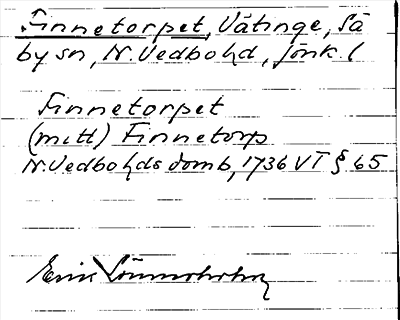 Finnetorpet, Vätinge, Sä
by sn, N. Vedbo hd, Jönk. l
Finnetorpet
(mitt) Finnetorp
N. Vedbo hds domb, 1736 VT § 65
Erik